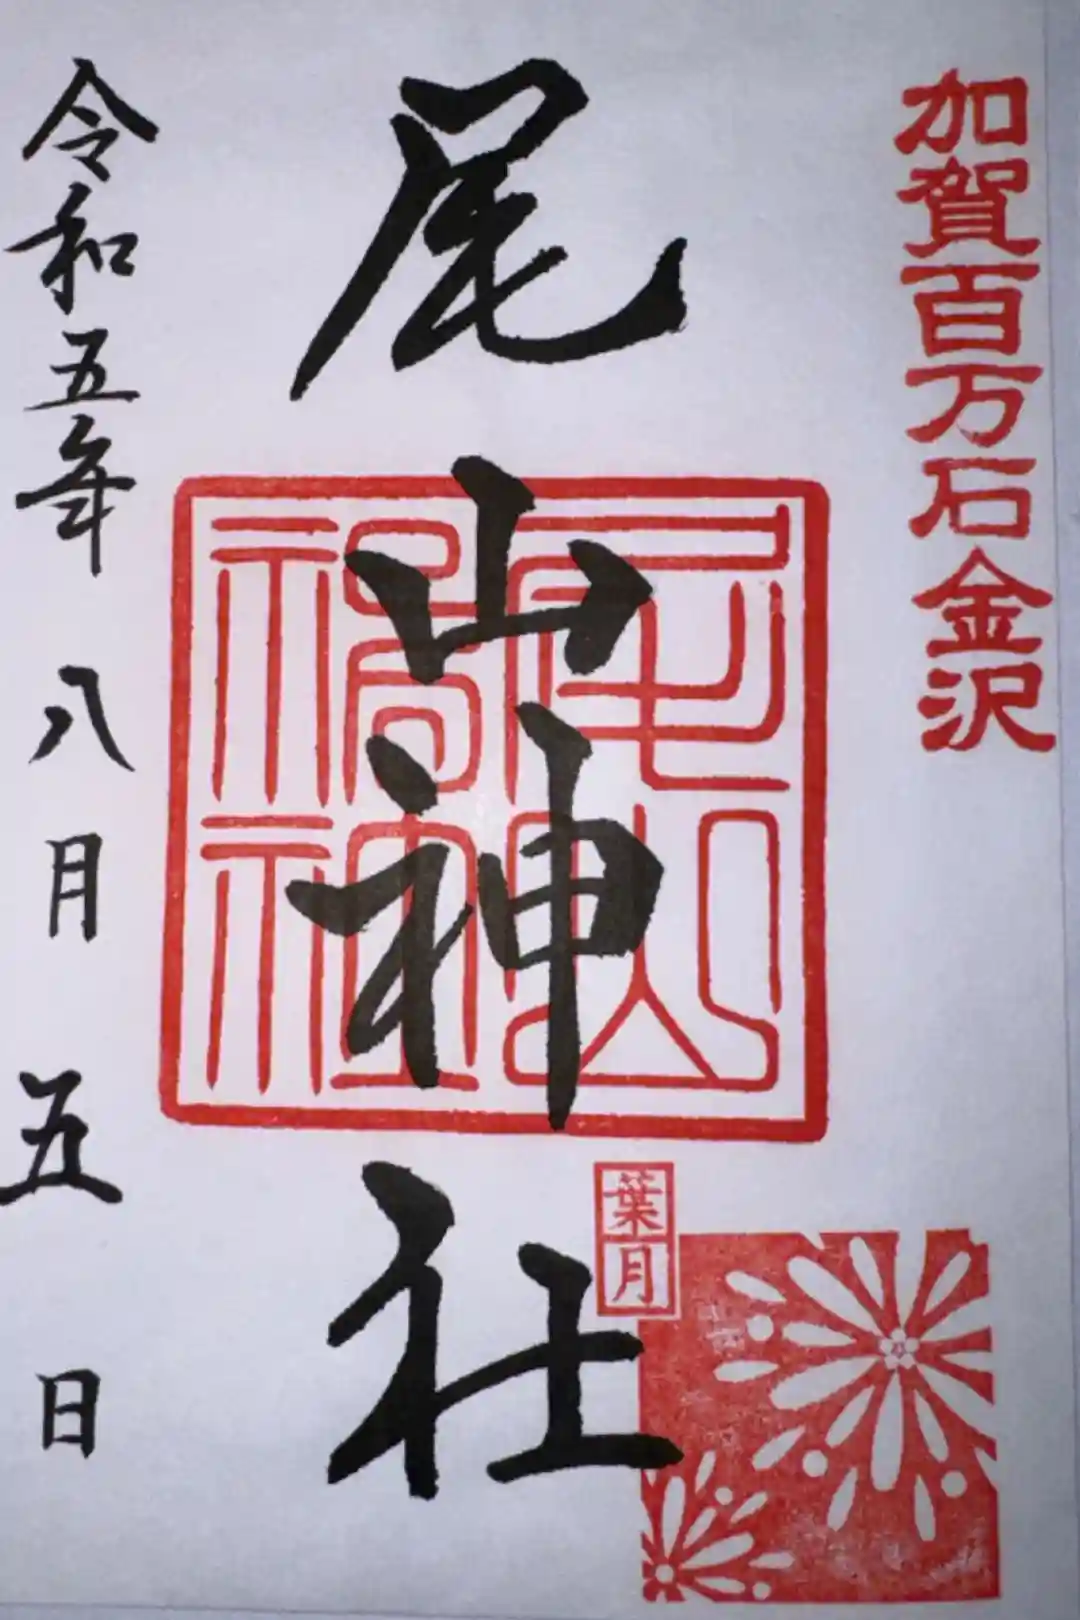 加賀百万石金沢
尾山神社
尾山神社
葉月
令和五年八月五日